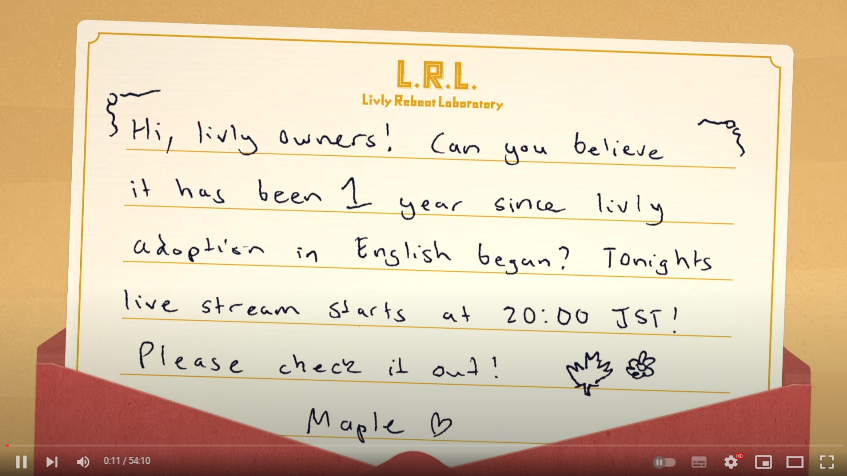 L.R.L.
Livly Reboot Laboratory
Hi, livly owners! Can you believe
it has been 1 year since livly
adoption in English began? Tonights
live stream starts at 20:00 JST!
Please check it out!
Maple
0:11 / 54:10
HD